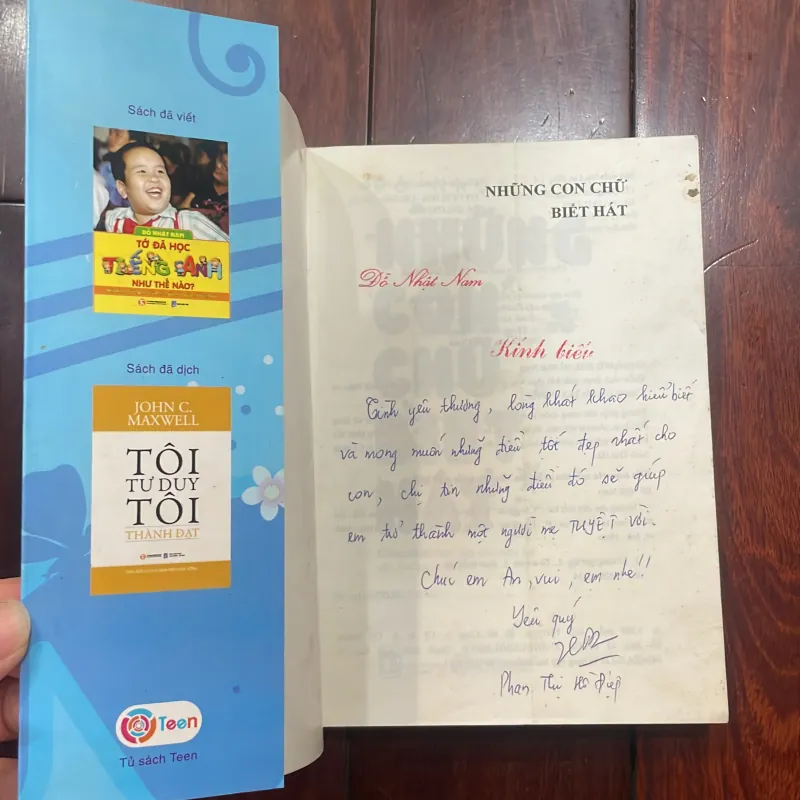 Sách đã viết
ĐỖ NHẬT NAM
TỚ ĐÃ HỌC
TIẾNG ANH
NHƯ THẾ NÀO?
Sách đã dịch
JOHN C.
MAXWELL
TÔI
TƯ DUY
TÔI
THÀNH ĐẠT
Teen
Tủ sách Teen
NHỮNG CON CHỮ
BIẾT HÁT
Đỗ Nhật Nam
Kính biếu
Tình yêu thương, lòng khát khao hiểu biết
và mong muốn những điều tốt đẹp nhất cho
con, chị tin những điều đó sẽ giúp
em trở thành một người mẹ TUYỆT vời.
Chúc em An, vui, ẹm nhé!!
Yêu quý
Phan Thị Hồ Điệp